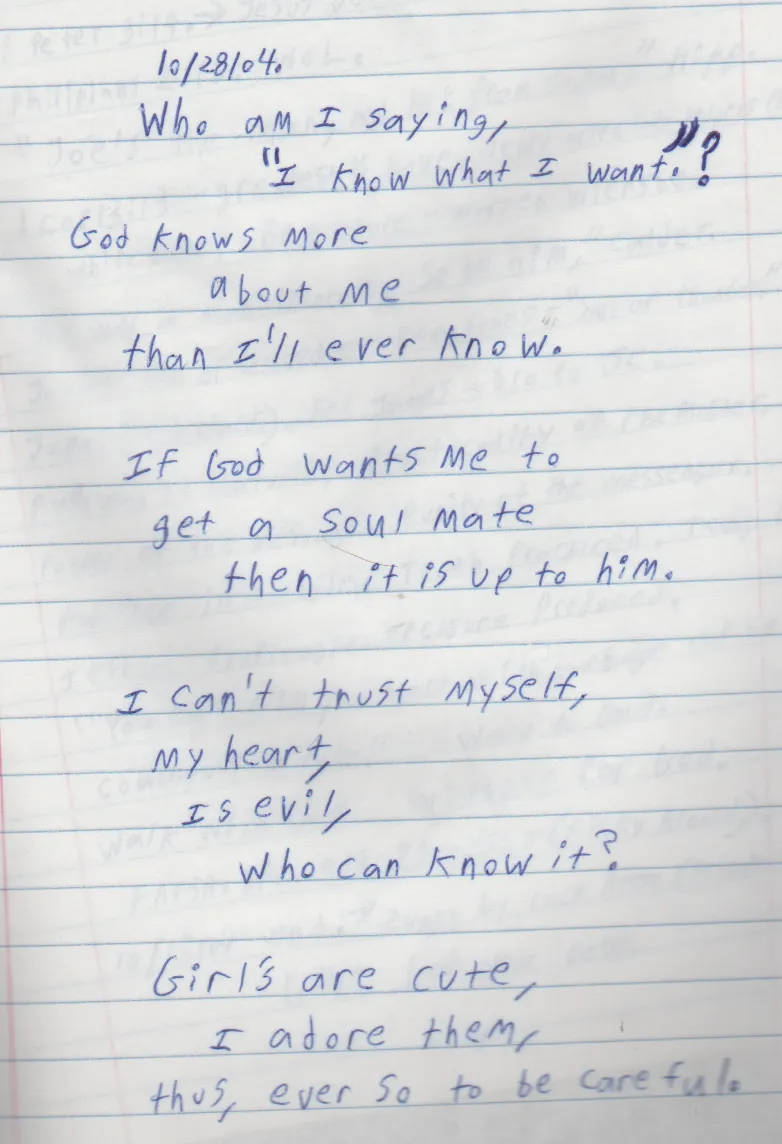 10/28/04.
Who am I saying,
"I know what I want."?
God knows more
about me
than I'll ever know.
If God wants me to
get a soul mate
then it is up to him.
I can't trust myself,
my heart,
Is evil,
who can know it?
Girl's are cute,
I adore them,
thus, ever so to be careful.